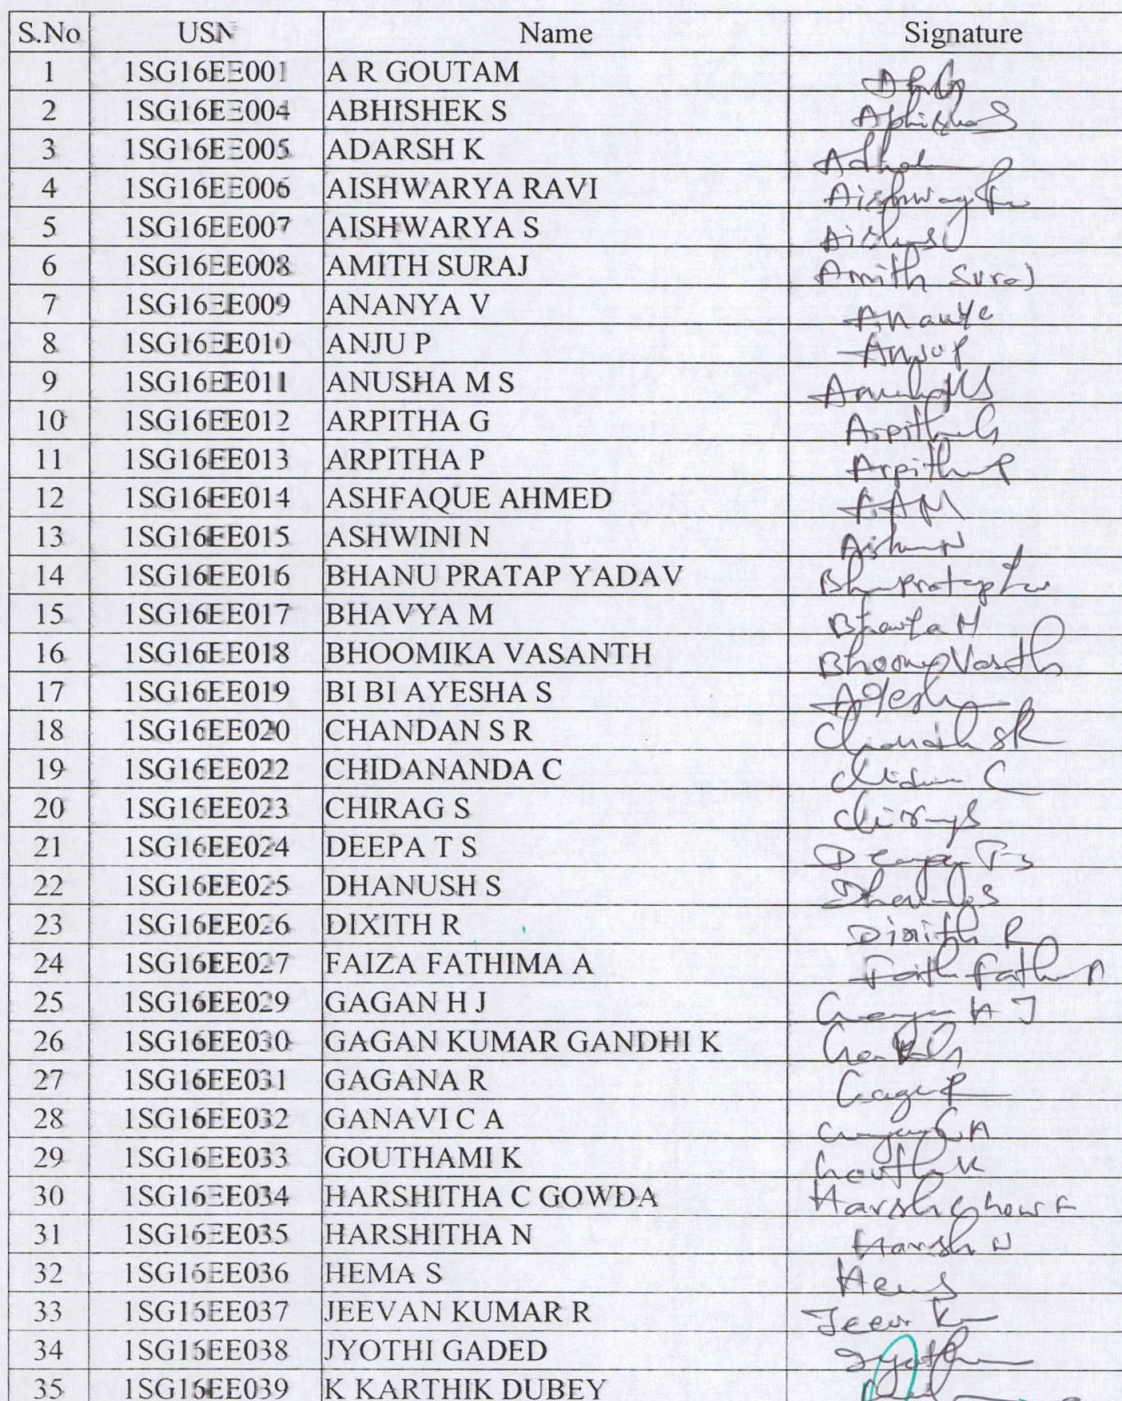 S.No USN Name Signature
1 1SG16EE001 A R GOUTAM
2 1SG16EE004 ABHISHEK S
3 1SG16EE005 ADARSH K
4 1SG16EE006 AISHWARYA RAVI
5 1SG16EE007 AISHWARYA S
6 1SG16EE008 AMITH SURAJ Amith Suraj
7 1SG16EE009 ANANYA V Ananya
8 1SG16EE010 ANJU P Anju P
9 1SG16EE011 ANUSHA M S
10 1SG16EE012 ARPITHA G Arpitha G
11 1SG16EE013 ARPITHA P Arpitha P
12 1SG16EE014 ASHFAQUE AHMED
13 1SG16EE015 ASHWINI N
14 1SG16EE016 BHANU PRATAP YADAV
15 1SG16EE017 BHAVYA M Bhavya M
16 1SG16EE018 BHOOMIKA VASANTH
17 1SG16EE019 BI BI AYESHA S Ayesha
18 1SG16EE020 CHANDAN S R
19 1SG16EE022 CHIDANANDA C
20 1SG16EE023 CHIRAG S
21 1SG16EE024 DEEPA T S
22 1SG16EE025 DHANUSH S
23 1SG16EE026 DIXITH R Dixith R
24 1SG16EE027 FAIZA FATHIMA A
25 1SG16EE029 GAGAN H J
26 1SG16EE030 GAGAN KUMAR GANDHI K
27 1SG16EE031 GAGANA R
28 1SG16EE032 GANAVI C A
29 1SG16EE033 GOUTHAMI K
30 1SG16EE034 HARSHITHA C GOWDA
31 1SG16EE035 HARSHITHA N Harsh N
32 1SG16EE036 HEMA S
33 1SG16EE037 JEEVAN KUMAR R
34 1SG16EE038 JYOTHI GADED
35 1SG16EE039 K KARTHIK DUBEY